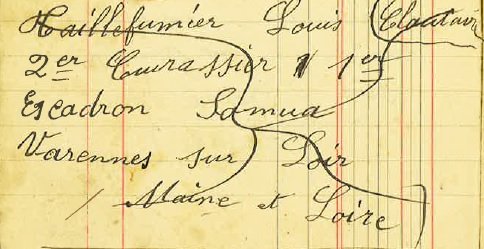 Taillefumier Louis
2er Cuirassier 1er
Escadron Samua
Varennes sur Loir
Maine et Loire